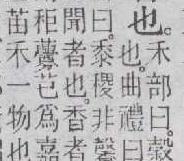 也。禾部曰。穀
也。曲禮曰
聞曰。黍稷非馨
秬鬯者也。香者
苗禾一物也
芑爲嘉